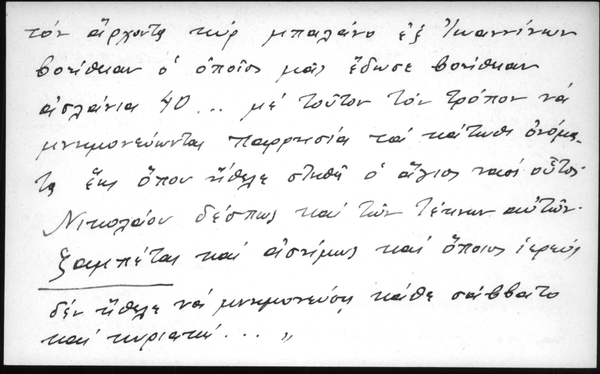 τόν ἄρχοντα κύρ μπαλάνο ἐξ Ἰωαννίνων
βοείθειαν ὁ ὁποῖος μᾶς ἔδωσε βοείθειαν
ἀσλάνια 40 ... μέ τοῦτον τόν τρόπον νά
μνημονεύωνται παρρησία τά κάτωθι ὀνόμα-
τα ἕως ὅπου ἤθελε στηθῆ ὁ ἅγιος ναός οὗτος
Νικολάου δέσπως καί τῶν τέκνων αὐτῶν.
Ξαμπέτας καί ἀσήμως καί ὅποιος ἱερεύς
δέν ἤθελε νά μνημονεύσῃ κάθε σάββατο
καί κυριακή ... „